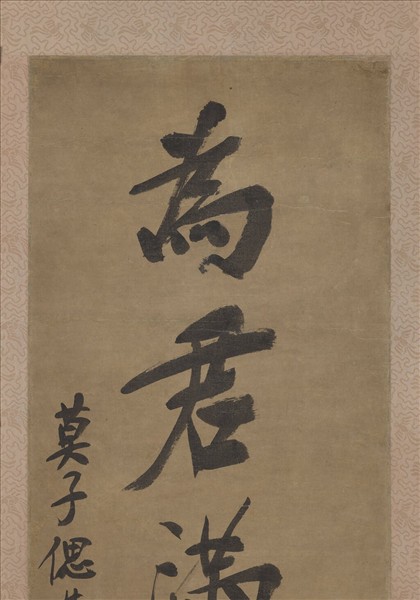 為君滿
莫子偲